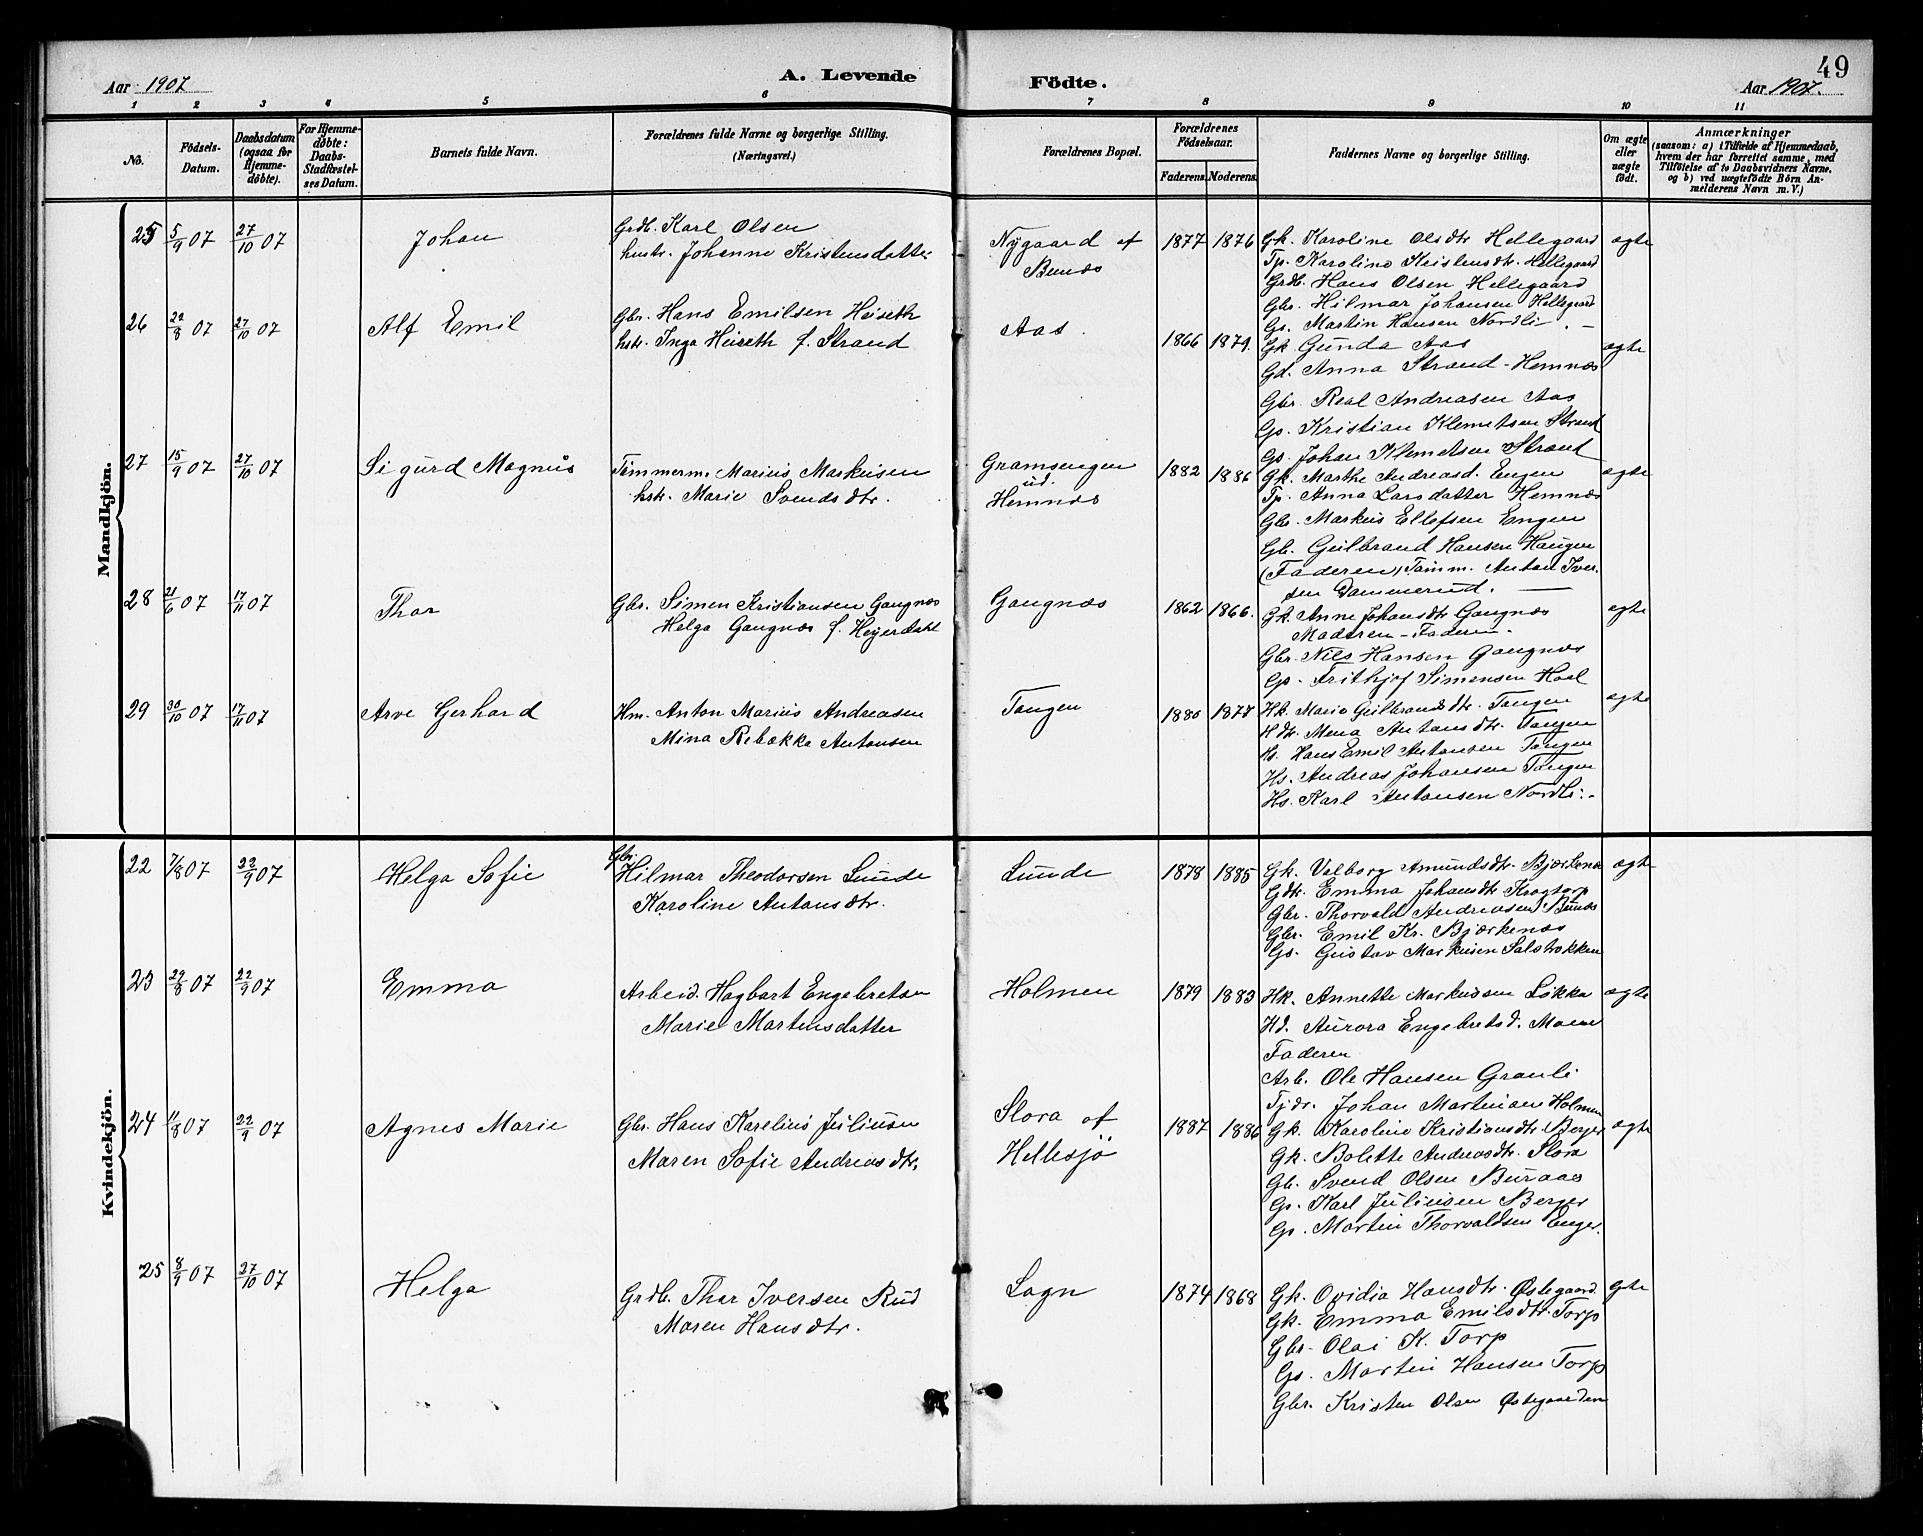 49
Aar 1907 A. Levende Födte. Aar 1907.
1 2 3 4 5 6 7 8 9 10 11
No.
Födsels-Datum.
Daabsdatum (ogsaa for Hjemme-döbte).
For Hjemme-döbte: Daabs-Stadfæstel-ses Datum.
Barnets fulde Navn.
Forældrenes fulde Navne og borgerlige Stilling. (Næringsvei.)
Forældrenes Bopæl.
Forældrenes Födselsaar.
Faderens. Moderens.
Faddernes Navne og borgerlige Stilling.
Om ægte eller uægte født.
Anmærkninger
(saasom: a) i Tilfælde af Hjemmedaab, hvem der har forrettet samme, med Tilföielse af to Daabsvidners Navne. og b) ved uægtefödte Börn An-melderens Navn m. V.)
Mandkjön.
25 5/9 07 27/10 07 Johan
Grdb. Karl Olsen
hustr. Johanne Kristensdatter
Nygaard af
Bunæs
1877 1876
Gk. Karoline Olsdtr Hellegaard ægte
Tp. Karoline Kristensdtr. Hellegaard
Grdb. Hans Olsen Hellegaard
Gbr. Hilmar Johansen Hellegaard
Gs. Martin Hansen Nordli. –
26 22/8 07 27/10 07 Alf Emil
Gbr. Hans Emilsen Heiseth
hstr. Inga Heiseth f. Strand
Aas.
1866 1879.
Gk Gunda Aas ægte
Gd. Anna Strand - Hemnæs
Gbr. Real Andreasen Aas
Gs. Kristian Klemetsen Strand
Gs. Johan Klemetsen Strand
27 15/9 07 27/10 07 Sigurd Magnus
Tømmerm. Marius Markusen
hstr. Marie Svendsdtr.
Gramsengen
ud.
Hemnæs
1882 1886
Gk. Marthe Andreasd. Engen ægte
Tp. Anna Larsdatter Hemnæs
Gbr. Markus Ellefsen Engen
Gb. Gulbrand Hansen Haugen
(Faderen) Tømm. Anton Iver-
sen Dammerud.
28 21/6 07 17/11 07 Thor
Gbr. Simen Kristiansen Gangnæs
Helga Gangnæs f. Heyerdahl
Gangnæs
1862 1866.
Gk. Anne Johansdtr Gangnæs ægte
Moderen - Faderen -
Gbr. Nils Hansen Gangnæs
Gs. Frithjof Simensen Hoel
29 30/10 07 17/11 07 Arve Gerhard
Hm. Anton Marius Andreasen
Mina Rebekka Antonsen
Tangen
1880 1877
Hk. Marie Gulbrandsdtr. Tangen ægte
Hdtr. Mena Antonsdtr. Tangen
Hs. Hans Emil Antonsen Tangen
Hs. Andreas Johansen Tangen
Hs. Karl Antonsen Nordli. -
Kvindekjön.
22 7/8 07 22/9 07 Helga Sofie
Gbr.
Hilmar Theodorsen Lunde
Karoline Antonsdtr.
Lunde
1878 1885
Gk. Valborg Amundsdtr. Bjærkenæs ægte
Gdtr. Emma Johansdtr. Krogtorp
Gbr. Thorvald Andreasen Bunæs
Gbr. Emil Kr. Bjærkenæs
Gs. Gustav Markusen
23 29/8 07 22/9 07 Emma
Arbeid. Hagbart Engebretsen
Marie Martinsdatter
Holmen
1879 1883
Hk. Annette Markussen Løkka ægte
Hd. Aurora Engebretsd. Moen
Faderen
Arb. Ole Hansen Granli
Tjdr. Johan Martinsen Holmen
24 11/8 07 22/9 07 Agnes Marie
Gbr. Hans Karelius Juliusen
Maren Sofie Andreasdtr.
Slora af
Hellesjö
1887 1886
Gk. Karoline Kristiansdtr. Berger ægte
Gk. Bolette Andreasdtr. Slora
Gb. Svend Olsen Buraas
Gs. Karl Juliusen Berger
Gs. Martin Thorvaldsen Enger.
25 8/9 07 27/10 07 Helga
Grdb. Thor Iversen Rud
Maren Hansdtr.
Sogn
1874 1868
Gk. Ovidia Hansdtr. Østegaard. ægte
Gk. Emma Emilsdtr. Torp
Gbr. Olai K. Torp
Gs. Martin Hansen Torp
Gbr. Kristen Olsen Østegaarden